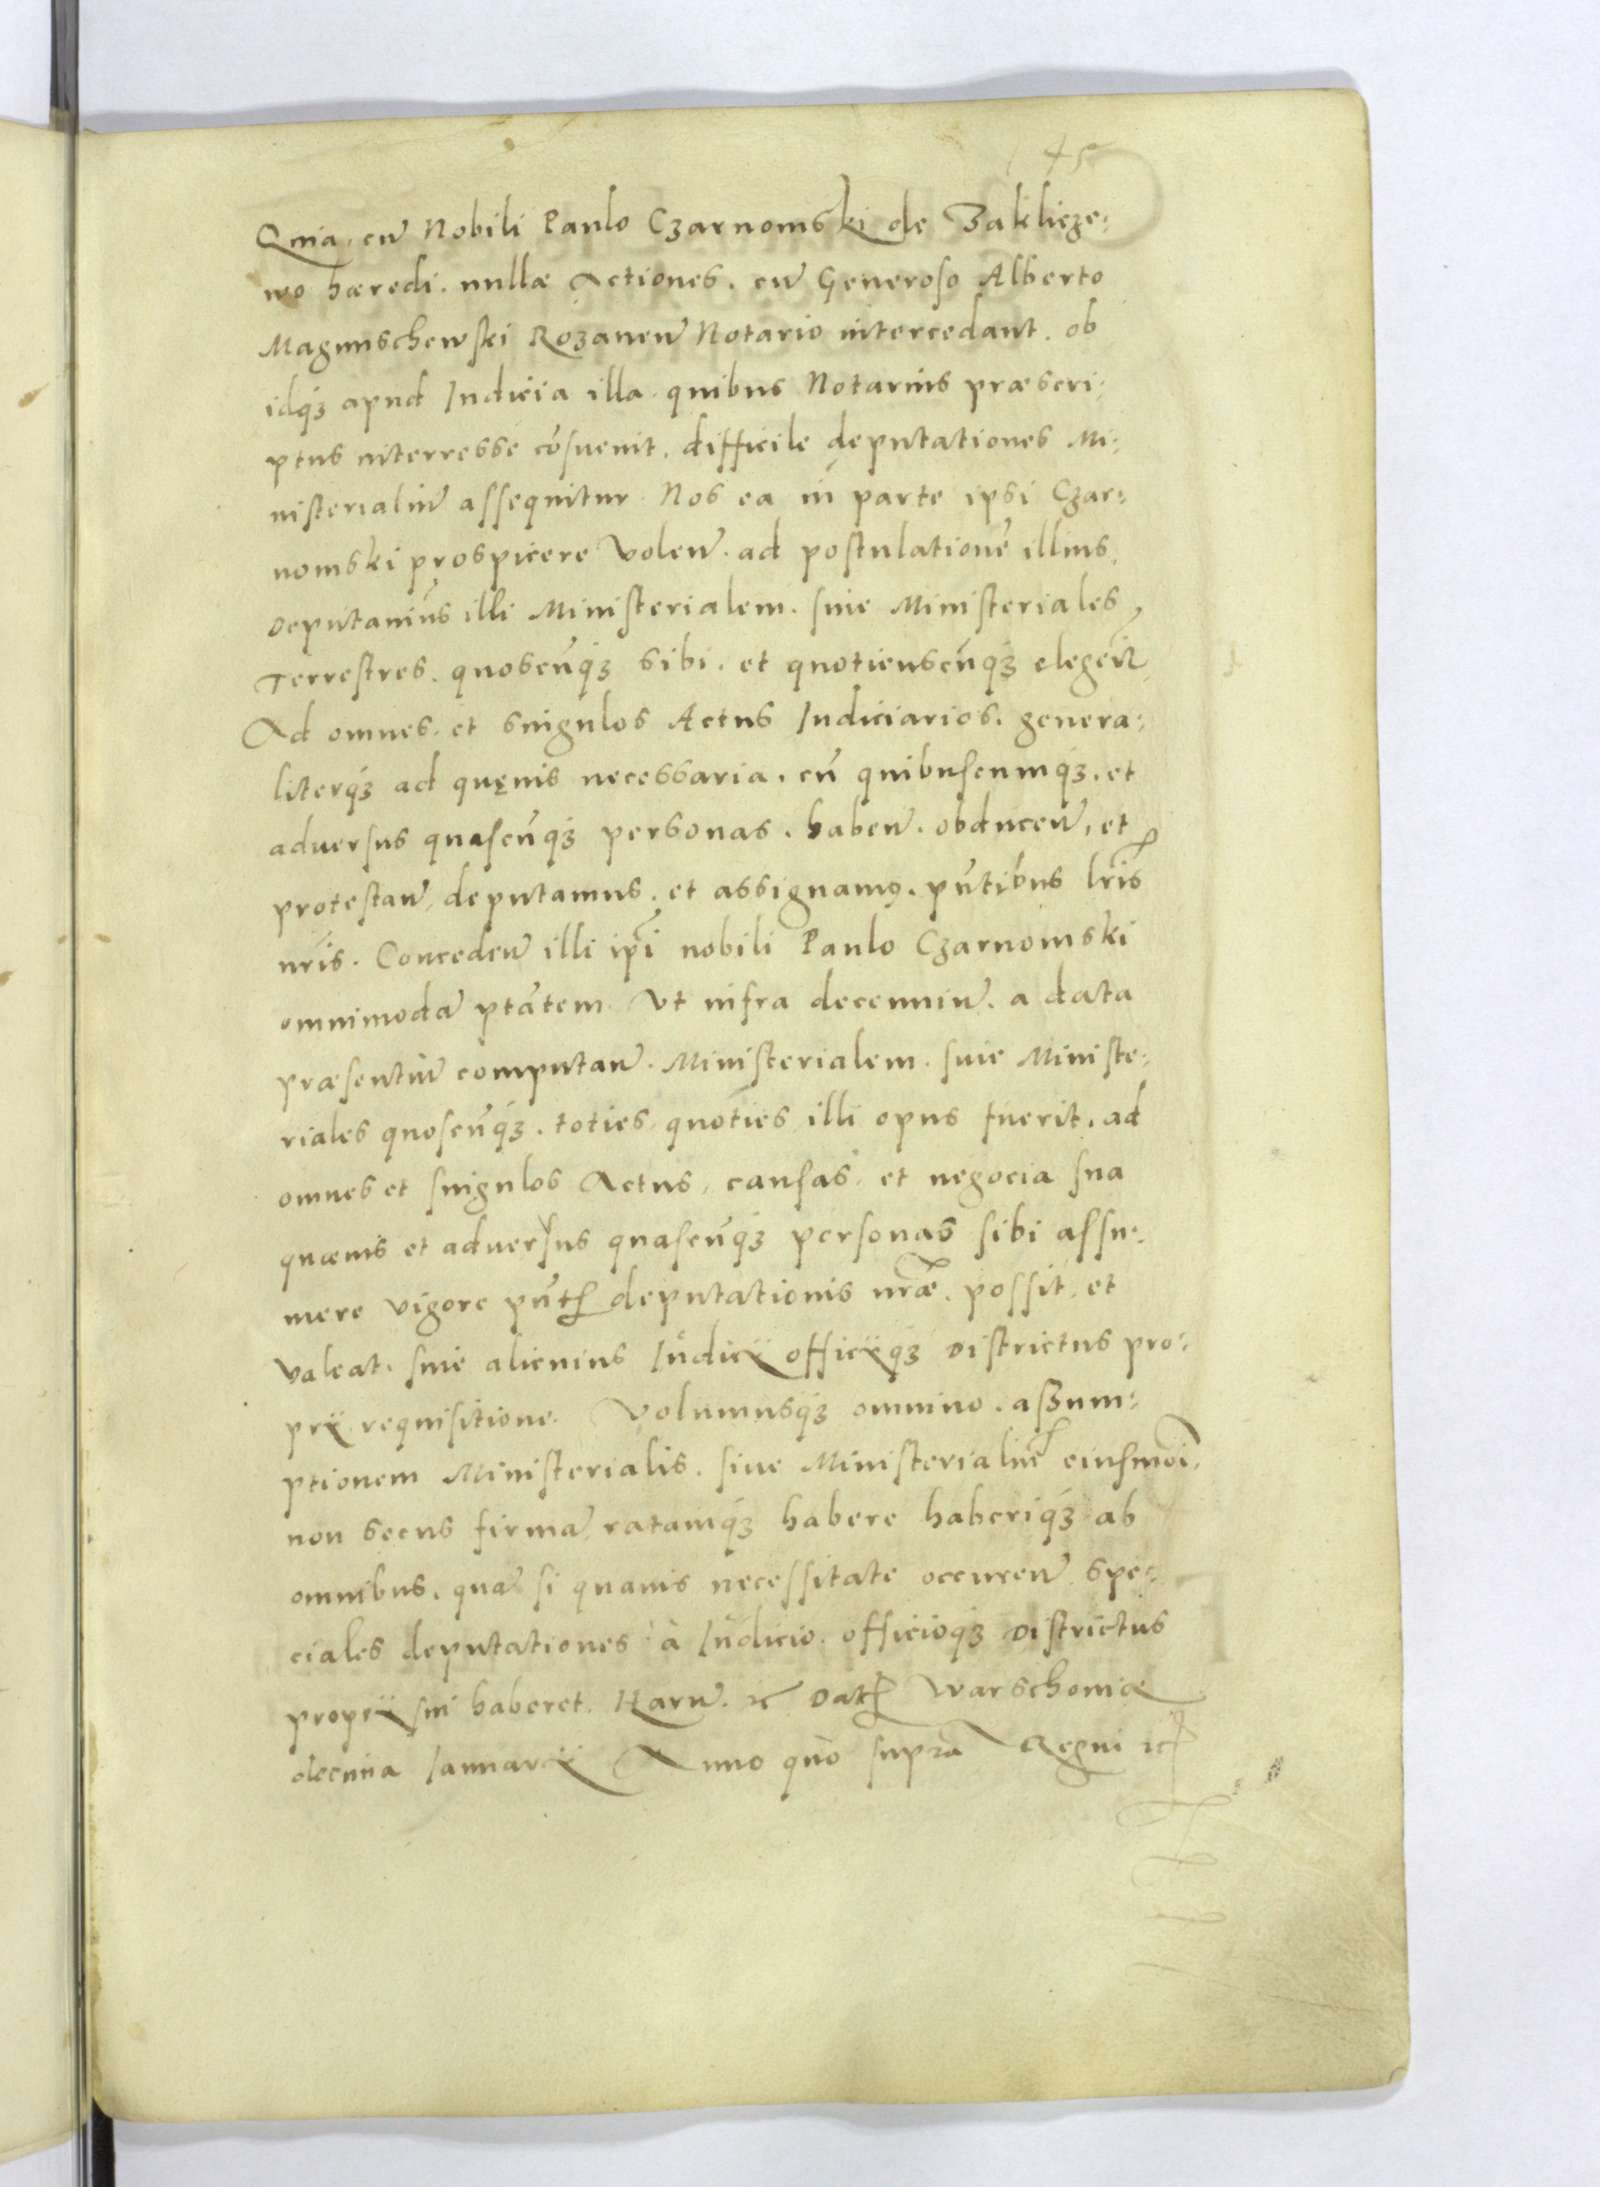 45
Quia cũ Nobili Paulo Czarnowski de Zaklicze-
wo hæredi. nullæ Actiones. cũ Generoso Alberto
Magnuschewski Rozaneñ Notario intercedant. ob
idq́ꝫ apud Iudicia illa quibus Notarius præscri-
ptus interresse cõsuevit. difficile deputationes Mi-
nisterialiũ assequitur Nos ea in parte ipsi Czar-
nowski prospicere Voleñ. ad postulationẽ illius,
Deputauim̃s illi Ministerialem. siue Ministeriales
Terrestres. quoscũq́ꝫ sibi. et quotienscũq́ꝫ elegerit
Ad omnes. et singulos Actus Iudiciarios. genera-
literq́ꝫ ad quęuis necessaria. cũ quibuscumq́ꝫ. et
aduersus quascũq́ꝫ personas. habeñ. obduceñ, et
protestañ deputamus. et assignamꝰ. pñtibus lr̃is
nr̃is. Concedeñ illi ip̃i nobili Paulo Czarnowski
omnimodã ptãtem Vt infra decenniũ. a data
præsentiũ computañ. Ministerialem. siue Ministe-
riales quoscũq́ꝫ. toties quoties illi opus fuerit. ad
omnes et singulos Actus, causas. et negocia sua
quæuis et aduersus quascũq́ꝫ personas sibi assu-
mere vigore pñtis deputationis nr̃æ. possit. et
valeat. siue alicuius Iudicij officijq́ꝫ Districtus pro-
prij requisitione. Volumusq́ꝫ omnino. aßum-
ptionem Ministerialis. siue Ministerialiũ eiusmõi
non secus firmã ratamq́ꝫ habere haberiq́ꝫ ab
omnibus. quã si quauis necessitate occurreñ spe-
ciales deputationes à Iudicio. officioq́ꝫ Districtus
proprij sui haberet. Harũ. ꝛc Datʒ Warschouiæ
decima Ianuarij Anno quo supra Regni ꝛc